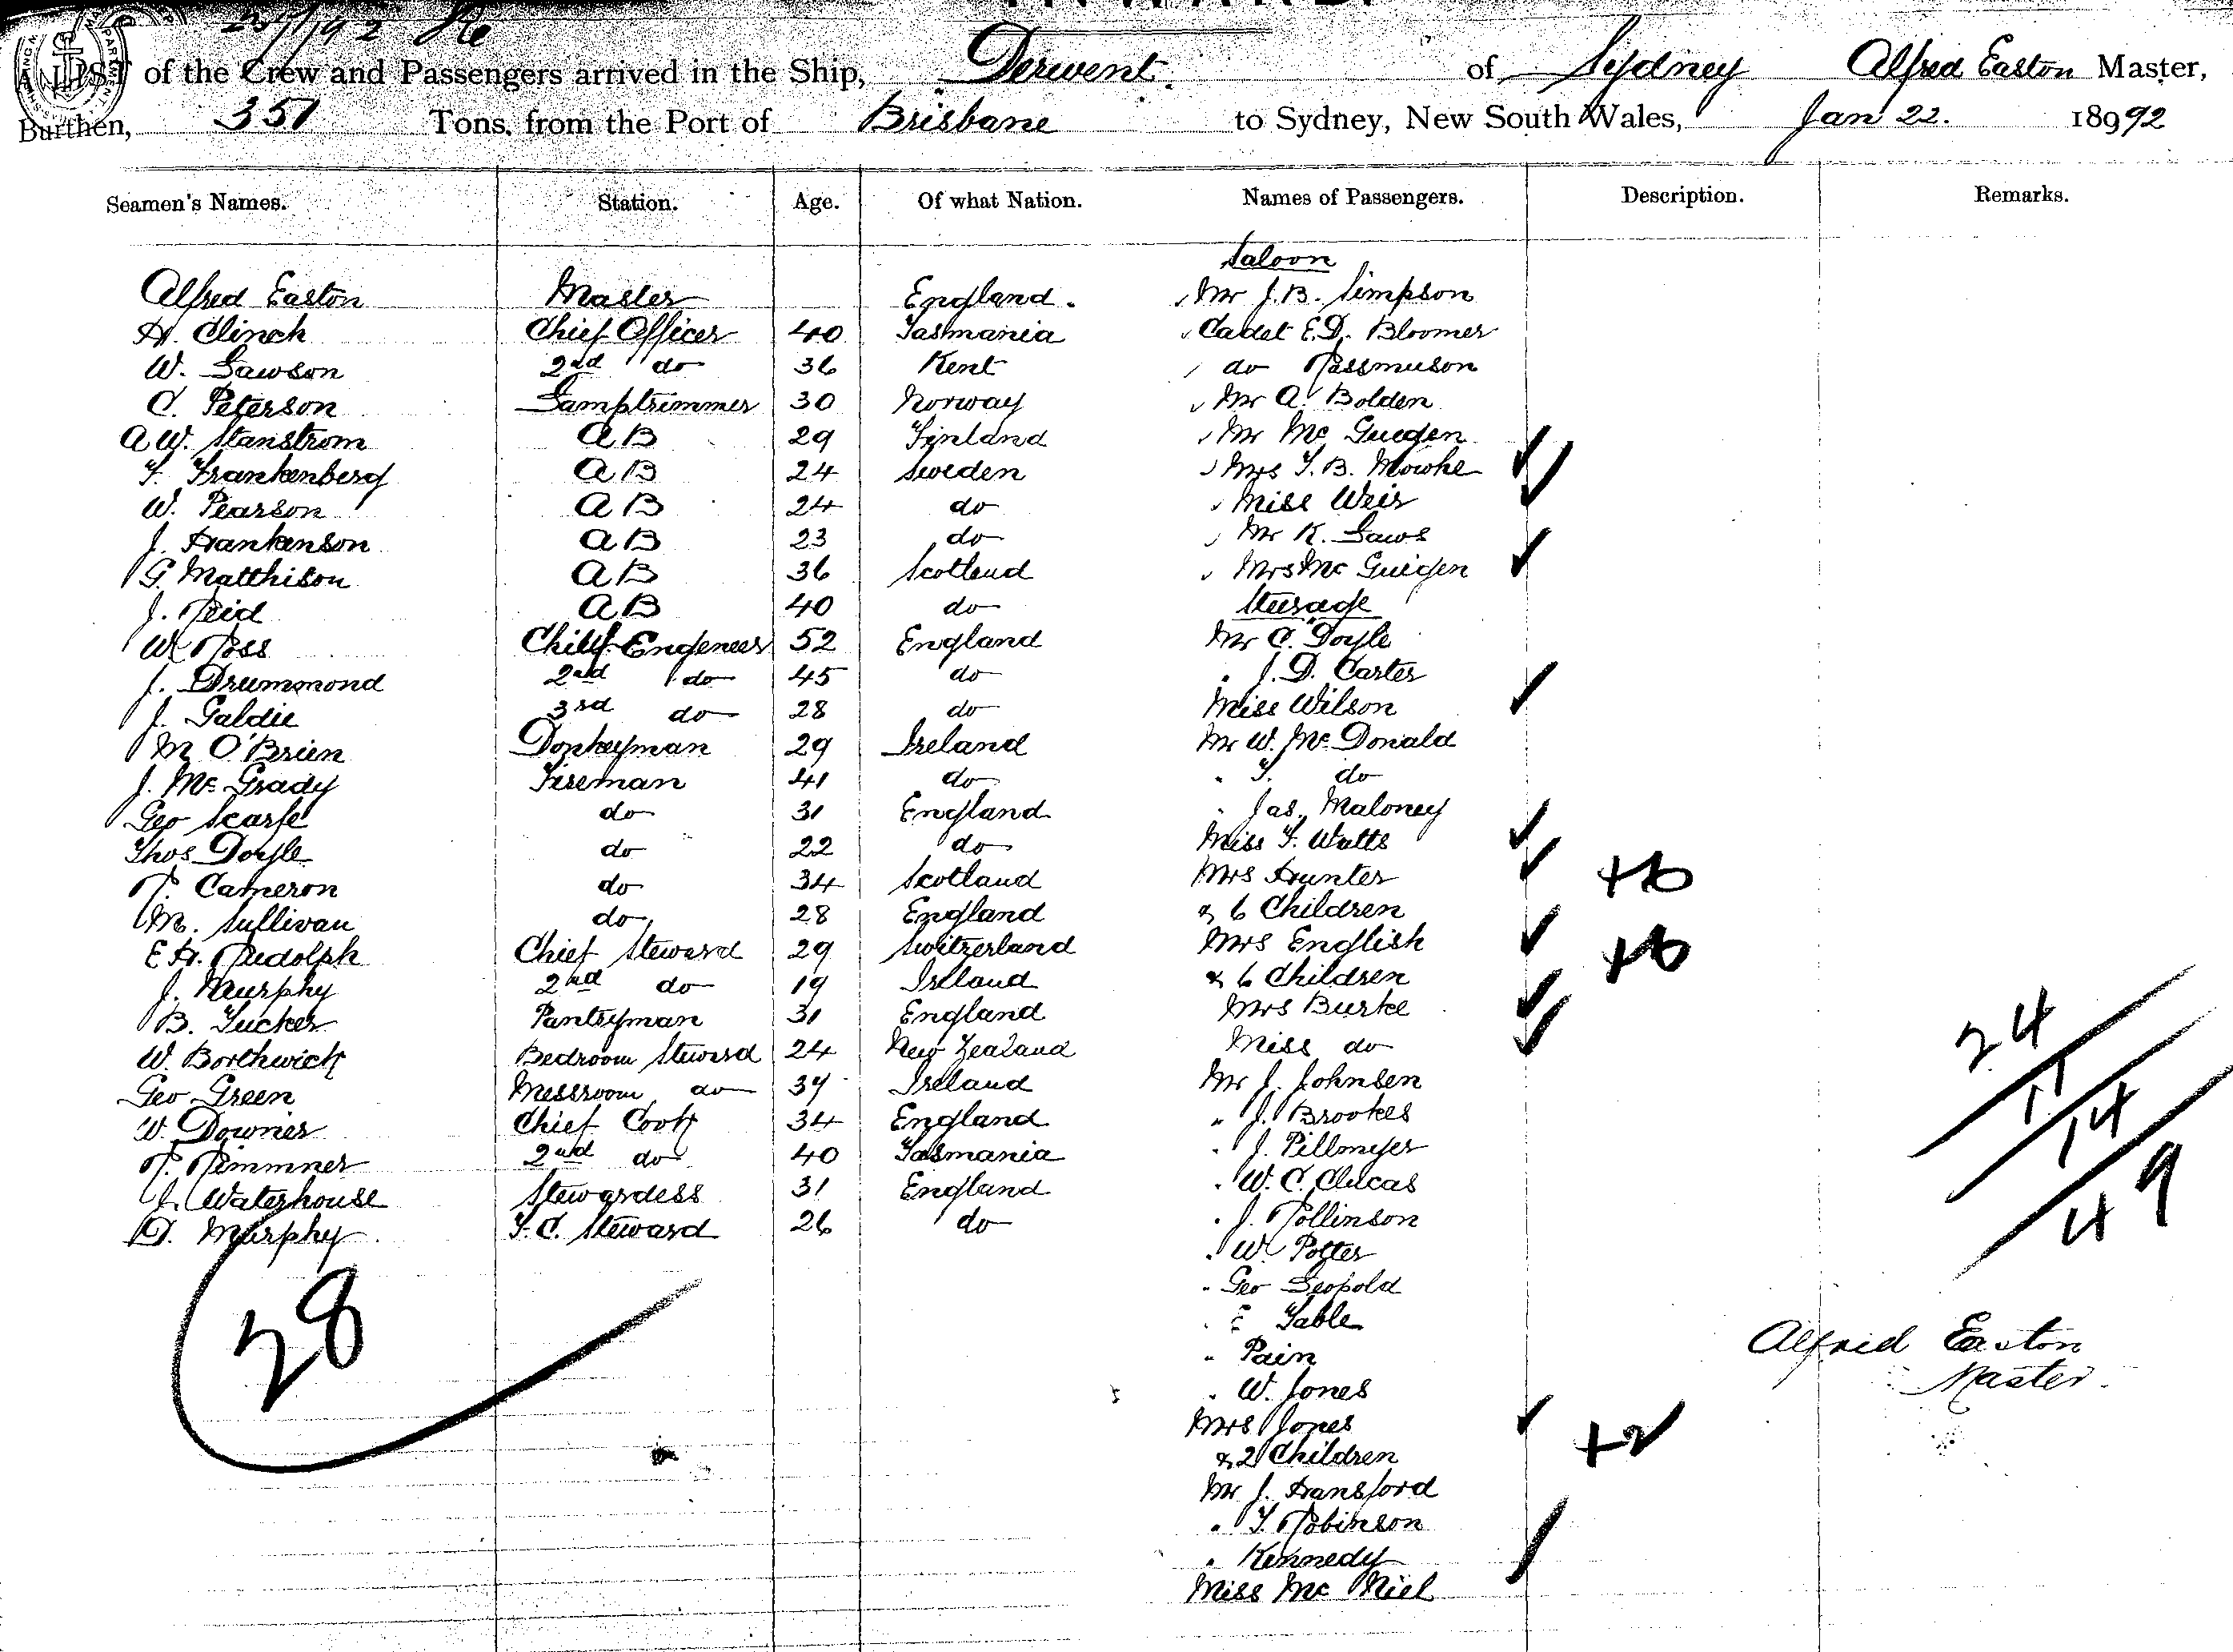 25/1/92
A LIST of the Crew and Passengers arrived in the Ship, Derwent of Sydney Alfred Easton Master,
Burthen, 351 Tons, from the Port of Brisbane to Sydney, New South Wales, Jan 22. 18992
Seamen's Names. Station. Age. Of what Nation. Names of Passengers. Description. Remarks.
Saloon
Alfred Easton Master England. Mr J.B. Simpson
H. Clinch Chief Officer 40 Tasmania Cadet E.D. Bloomer
W. Lawson 2nd do 36 Kent do Rassmuson
C. Peterson Lamptrimmer 30 Norway Mr A. Bolden
A W. Stanstrom A B 29 Finland Mr Mc Guigen
F. Frankenberg A B 24 Sweden Mrs T. B. Mowhe
W. Pearson A B 24 do Miss Weir
J. Hankenson A B 23 do Mr K. Laws
G. Matthison A B 36 Scotland Mrs Mc Guigen
J. Reid A B 40 do Steerage
W Ross Chief Engeneer 52 England Mr C. Doyle
J. Drummond 2nd do 45 do " J. D. Carter
J. Galdie 3rd do 28 do Miss Wilson
M O'Brien Donkeyman 29 Ireland Mr W. Mc Donald
J. Mc Grady Fireman 41 do " T. do
Geo Scarfe do 31 England " Jas. Maloney
Thos Doyle do 22 do Miss F. Watts
R. Cameron do 34 Scotland Mrs Hunter +6
M. Sullivan do 28 England & 6 Children
E H. Rudolph Chief Steward 29 Switzerland Mrs English +6
J. Murphy 2nd do 19 Ireland & 6 Children
B. Tucker Pantryman 31 England Mrs Burke
W. Borthwick Bedroom Steward 24 New Zealand Miss do
Geo Green Messroom do 39 Ireland Mr J. Johnsen
W. Downer Chief Cook 34 England " J. Brookes
R. Rimmner 2nd do 40 Tasmania " J. Pillmeyer
J. Waterhouse Stewardess 31 England " W. C. Clucas
D. Murphy F. C. Steward 26 do " J. Rollinson
" W. Potter
" Geo Leopold
" E Table
" Pain
" W. Jones
Mrs Jones +2
& 2 Children
Mr J. Hansford
" T. Robinson
" Kennedy
Miss Mc Niel
28
24
11
14
49
Alfred Easton
Master.